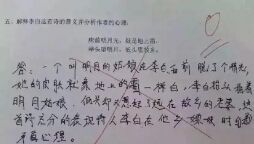 五、解释李白这首诗的意义并分析作者的心理:
床前明月光,疑是地上霜。
举头望明月,低头思故乡。
答:一个叫明月的姑娘在李白面前脱了个精光,
她的皮肤就象地上的霜一样白,李白抬头看着
明月姑娘,但头却又想起了远在故乡的老婆,这
首诗充分的表现诗人李白在他乡嫖娼时的
矛盾心理。